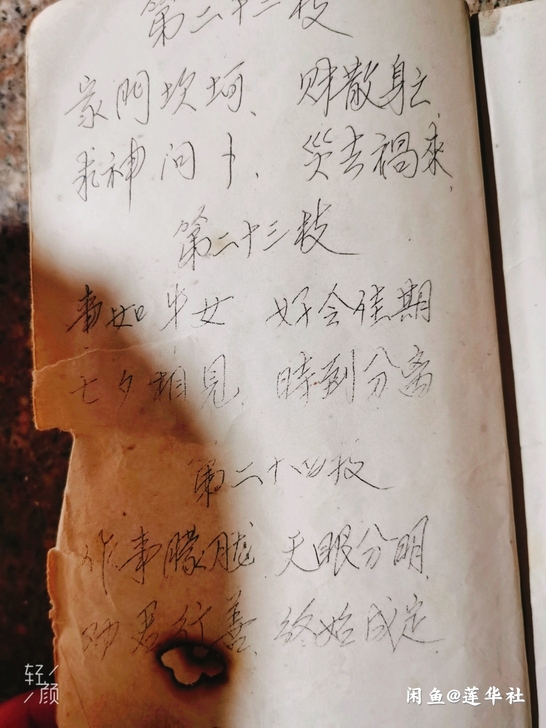 第二十二枝
家門坎坷、财散身
求神问卜、災去禍來、
第二十三枝
事如牛女 好会佳期
七夕相見、時到分离
第二十四枝
作事朦胧 天眼分明、
劝君行善、终始成定、
轻颜
闲鱼@莲华社